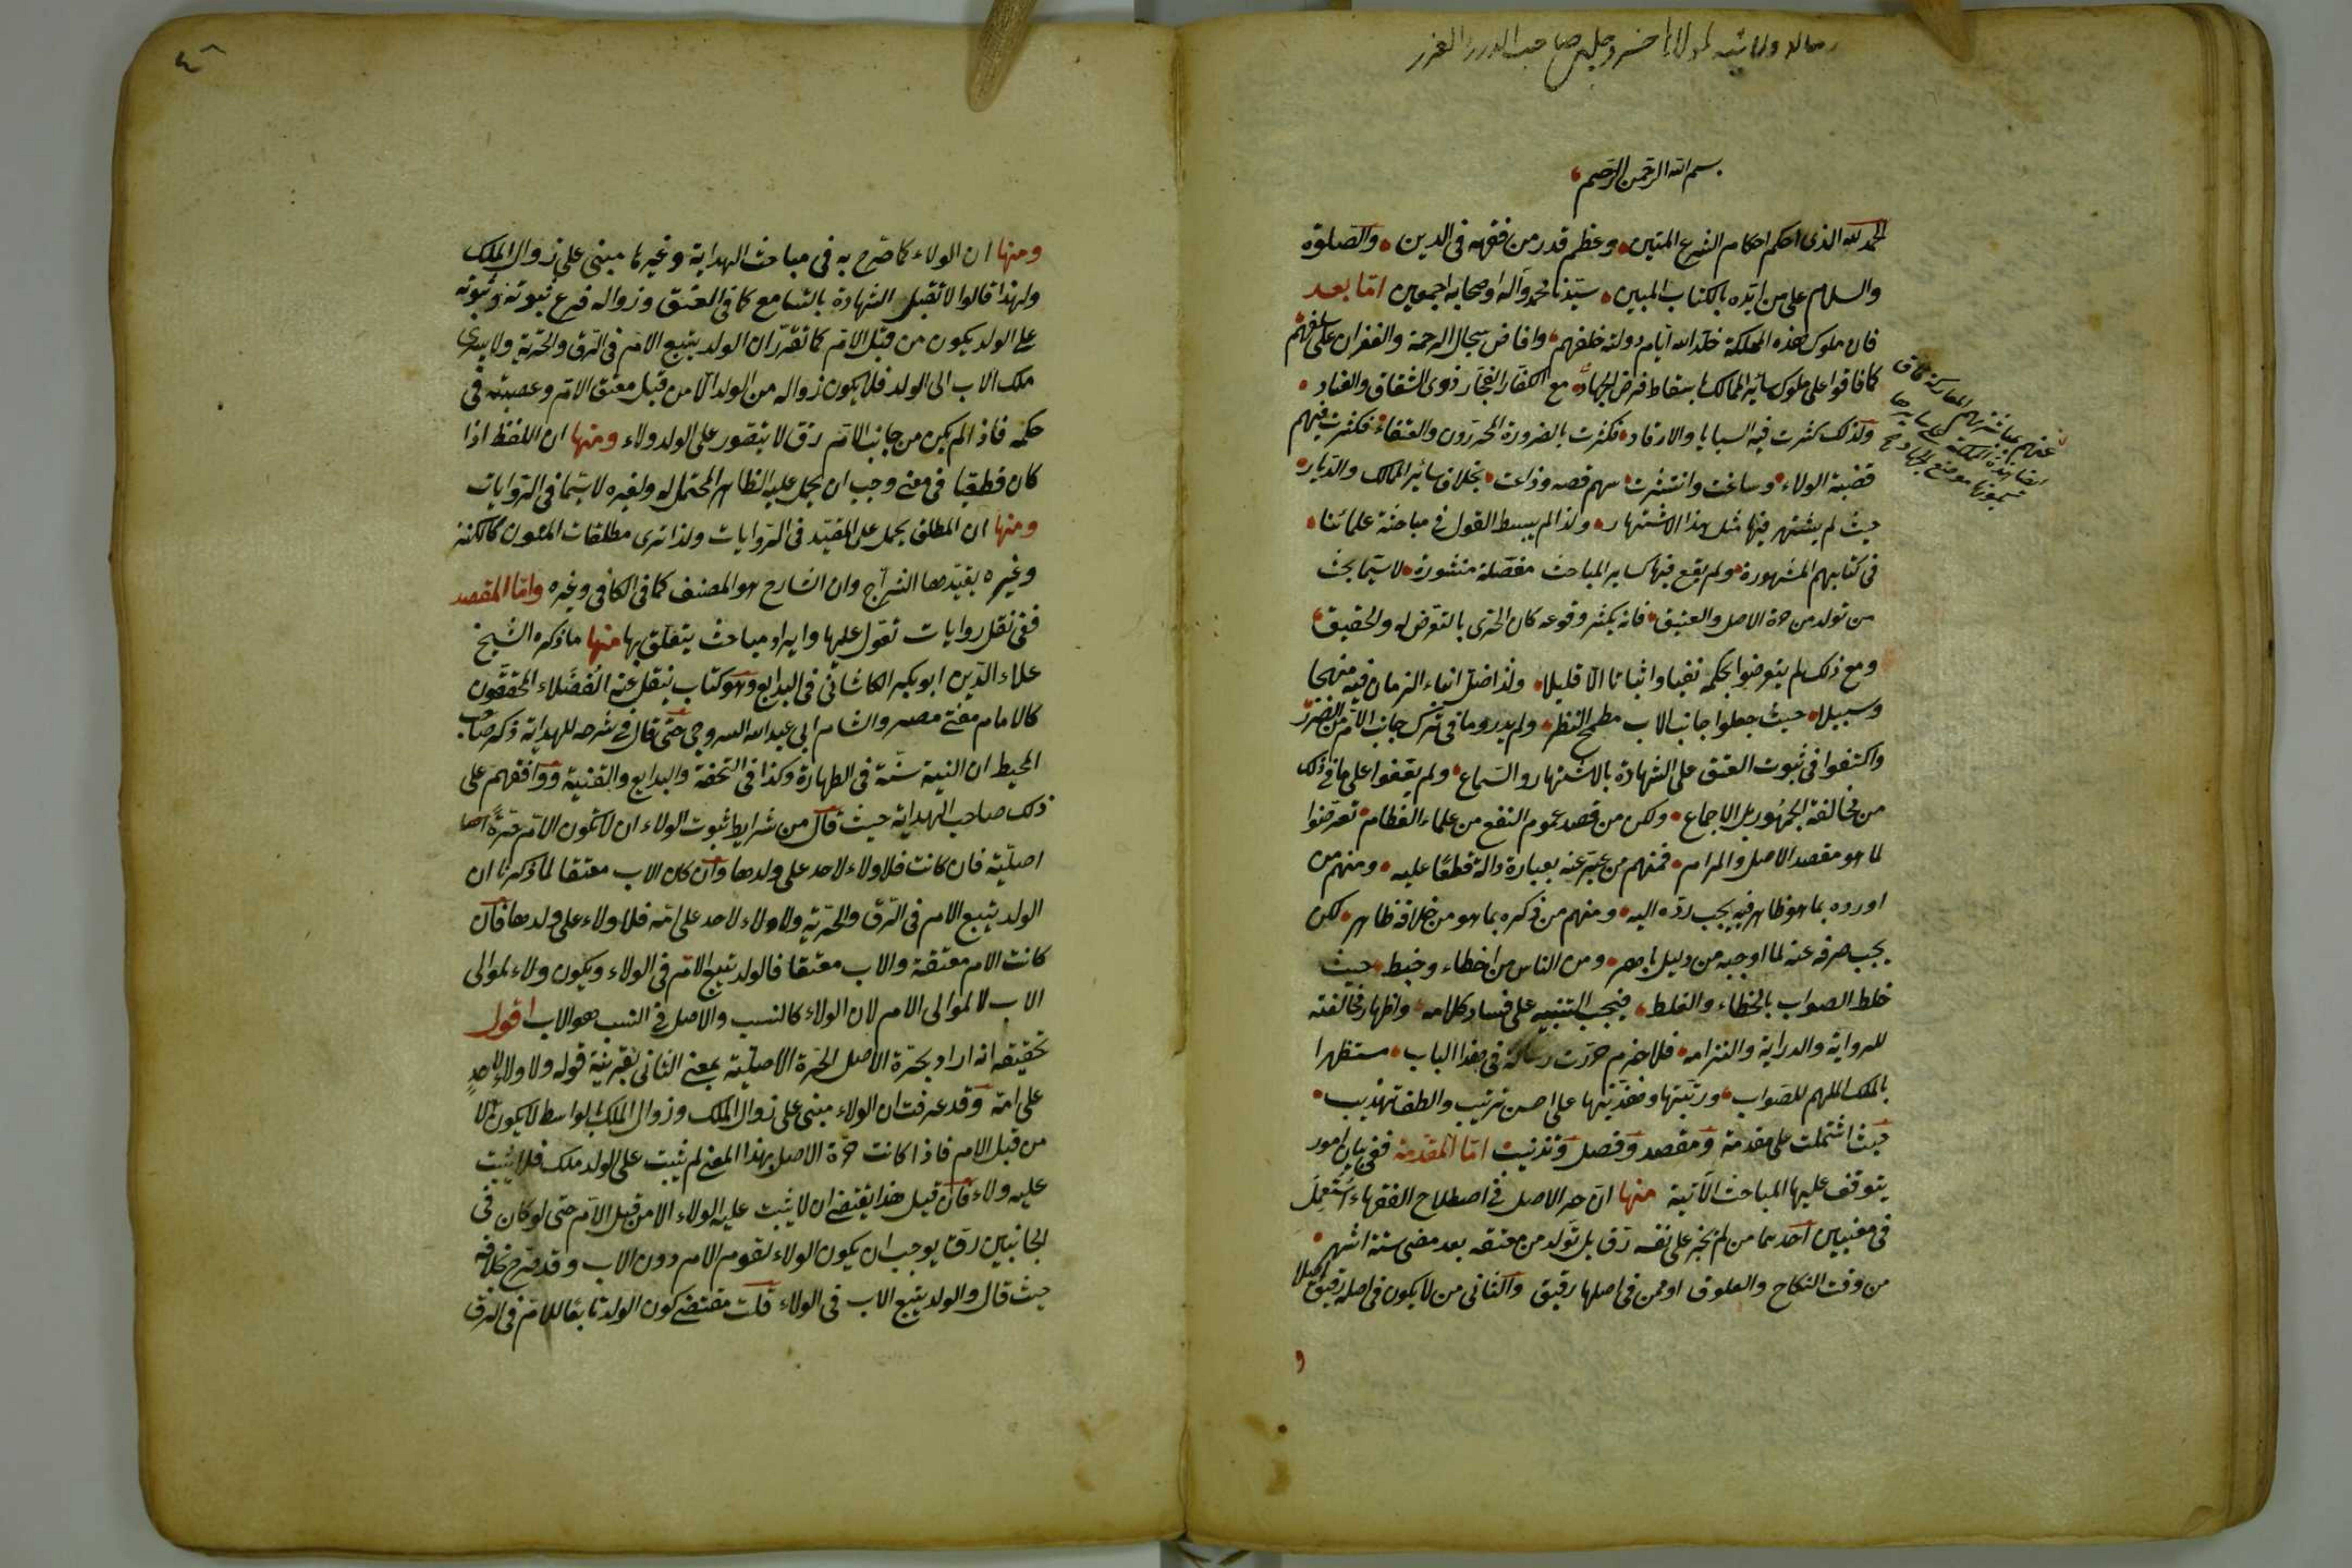 رساله ولائيه لمولانا خسرو چلبى صاحب الدرر الغرر
بسم الله الرحمن الرحيم
الحمد لله الذى احكم احكام الشرع المتين وعظم قدر من فقهه فى الدين والصلوة
والسلام على من ايده بالكتاب المبين سيدنا محمد وآله وصحابه اجمعين اما بعد
فان ملوك هذه المملكة خلد الله ايام دولة خلفهم وافاض سجال الرحمة والغفران على سلفهم
كما فاقوا على ملوك سائر الممالك باسقاط فرض الجهاد مع الكفار الفجار ذوى الشقاق والعناد
ولذلك كثرت فيه السبايا والارقاء فكثرت بالضرورة المحررون والعتقاء فكثرت فيهم
قضية الولاء وساغت وانتشرت بينهم قصه وذاعت بخلاف سائر الممالك والديار
حيث لم يشتهر فيها مثل هذا الاشتهار ولذا لم يبسط القول فى مباحثه علمائنا
فى كتابهم المشهورة ولم يقع فيها كساير المباحث مفصلة منشورة لا سيما بحث
من تولد من حرة الاصل والعتيق فانه يكثر وقوعه كان الحرى بالتعرض له والتحقيق
ومع ذلك لم يتعرضوا بحكمه نفيا واثباتا الا قليلا ولذا ضل ابناء الزمان فيه منهجا
وسبيلا حيث جعلوا جانب الاب مطمح النظر ولم يدروا ما فى ترك جانب الام من الضرر
واكتفوا فى ثبوت العتق على الشهادة بالاشتهار والسماع ولم يقفوا على ما فى ذلك
من مخالفة الجمهور بل الاجماع ولكن من قصد عموم النفع من علماء العظام تعرضوا
لما هو مقصد الاصل والمرام فمنهم من عبر عنه بعبارة دالة قطعا عليه ومنهم من
اورده بما هو ظاهر فيه يجب رده اليه ومنهم من ذكره بما هو من خلافه ظاهر لكن
يجب صرفه عنه لما اوجبه من دليل باهر ومن الناس من اخطاء وخبط حيث
خلط الصواب بالخطاء والغلط فيجب التنبيه على فساد كلامه واظهار مخالفته
للرواية والدراية والتزامه فلا جرم حررت رسالة فى هذا الباب مستظهرا
بالملك الملهم للصواب ورتبتها وهذبتها على احسن ترتيب والطف تهذيب
حيث اشتملت على مقدمة ومقصد وفصل وتذنيب اما المقدمة ففى بيان امور
يتوقف عليها المباحث الآتية منها ان حر الاصل فى اصطلاح الفقهاء استعمل
فى معنيين احدهما من لم يجر على نفسه رق بل تولد من معتقه بعد مضى ستة اشهر
من وقت النكاح والعلوق او ممن فى اصلها رقيق والثانى من لا يكون فى اصله رقيق اصلا
ومنها ان الولاء كما صرح به فى مباحث الهداية وغيرها مبنى على زوال الملك
ولهذا قالوا لا تقبل الشهادة بالتسامع كما فى العتق وزواله فرع ثبوته وثبوته
على الولد يكون من قبل الام كما تقرر ان الولد يتبع الام فى الرق والحرية ولا يسرى
ملك الاب الى الولد فلا يكون زواله من الولد الا من قبل معتق الام وعصبته فى
حكمه فاذا لم يكن من جانب الام رق لا يتصور على الولد ولاء ومنها ان اللفظ اذا
كان قطعيا فى معنى وجب ان يحمل عليه الظاهر المحتمل له ولغيره لا سيما فى الروايات
ومنها ان المطلق يحمل على المقيد فى الروايات ولذا ترى مطلقات المتون كالكنز
وغيره يقيدها الشراح وان الشارح هو المصنف كما فى الكافى وغيره واما المقصد
ففى نقل روايات نعول عليها وايراد مباحث يتعلق بها منها ما ذكره الشيخ
علاء الدين ابو بكر الكاشانى فى البدايع وهو كتاب ينقل عنه الفضلاء المحققون
كالامام مفتى مصر والشام ابى عبد الله السروجى حتى قال فى شرحه للهداية ذكر صاحب
المحيط ان النية سنة فى الطهارة وكذا فى التحفة والبدايع والقنية ووافقهم على
ذلك صاحب الهداية حيث قال من شرايط ثبوت الولاء ان لا تكون الام حرة
اصلية فان كانت فلا ولاء لاحد على ولدها وان كان الاب معتقا لما ذكرنا ان
الولد يتبع الام فى الرق والحرية ولا ولاء لاحد على امه فلا ولاء على ولدها فان
كانت الام معتقة والاب معتقا فالولد يتبع الام فى الولاء ويكون ولاءه لموالى
الاب لا لموالى الام لان الولاء كالنسب والاصل فى النسب هو الاب اقول
تحقيقه انه اراد بحرة الاصل الحرة الاصلية بمعنى الثانى بقرينة قوله ولا ولاء لاحد
على امه وقد عرفت ان الولاء مبنى على زوال الملك وزوال الملك بالواسط لا يكون الا
من قبل الام فاذا كانت حرة الاصل بهذا المعنى لم يثبت على الولد ملك فلا يثبت
عليه ولاء فان قيل هذا يقتضى ان لا يثبت عليه الولاء الا من قبل الام حتى لو كان فى
الجانبين رق يوجب ان يكون الولاء لقوم الام دون الاب وقد صرح بخلافه
حيث قال والولد يتبع الاب فى الولاء قلت مقتضى كون الولد تابعا للام فى الرق